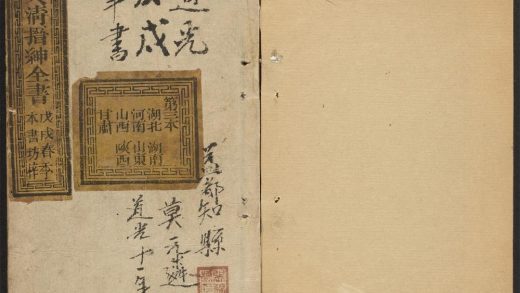 道光
戊戌
清搢紳全書
戊戌春季
本書坊梓
第三本
湖北 湖南
河南 山東
山西 陝西
甘肅
都知縣
莫
道光十一年